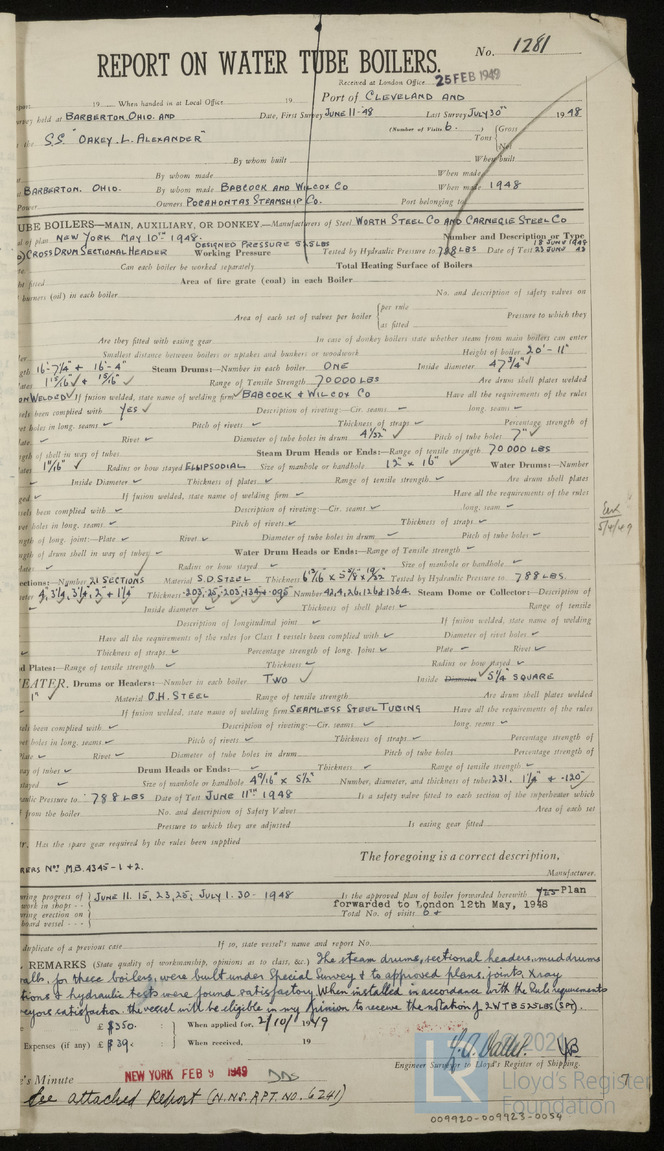 No. 1281
REPORT ON WATER TUBE BOILERS.
Received at London Office 25 FEB 1949
19 When handed in at Local Office 19 Port of CLEVELAND AND
held at BARBERTON, OHIO. AND Date, First Survey JUNE 11-48 Last Survey JULY 30th 1948
(Number of Visits 6. ) Gross
Tons
Net
the S.S. "OAKEY. L. ALEXANDER"
By whom built When built
By whom made When made
BARBERTON. OHIO. By whom made BABCOCK AND WILCOX CO When made 1948
Power. Owners POCAHONTAS STEAMSHIP CO. Port belonging to
TUBE BOILERS—MAIN, AUXILIARY, OR DONKEY.—Manufacturers of Steel WORTH STEEL CO AND CARNEGIE STEEL CO
of plan NEW YORK MAY 10TH 1948. Number and Description or Type
CROSS DRUM SECTIONAL HEADER DESIGNED PRESSURE 525 LBS Working Pressure Tested by Hydraulic Pressure to 788 LBS Date of Test 18 JUNE 1948 23 JUNE 48
Can each boiler be worked separately Total Heating Surface of Boilers
Area of fire grate (coal) in each Boiler
burners (oil) in each boiler No. and description of safety valves on
Area of each set of valves per boiler per rule as fitted Pressure to which they
Are they fitted with easing gear In case of donkey boilers state whether steam from main boilers can enter
Smallest distance between boilers or uptakes and bunkers or woodwork Height of boiler 20'-11"
16'-7¼" + 16'-4" Steam Drums:—Number in each boiler ONE Inside diameter 47¾"
1 15/16" + 15/16" Range of Tensile Strength 70000 LBS Are drum shell plates welded
WELDED If fusion welded, state name of welding firm BABCOCK & WILCOX CO Have all the requirements of the rules
been complied with YES Description of riveting:—Cir. seams long. seams
holes in long. seams Pitch of rivets Thickness of straps Percentage strength of
Plate Rivet Diameter of tube holes in drum 4 1/32" Pitch of tube holes 7"
of shell in way of tubes Steam Drum Heads or Ends:—Range of Tensile strength 70000 LBS
1 1/16" Radius or how stayed ELLIPSODIAL Size of manhole or handhole 12" x 16" Water Drums:—Number
Inside Diameter Thickness of plates Range of tensile strength. Are drum shell plates
If fusion welded, state name of welding firm Have all the requirements of the rules
been complied with Description of riveting:—Cir. seams long. seam
holes in long. seams Pitch of rivets Thickness of straps
of long. joint:—Plate Rivet Diameter of tube holes in drum Pitch of tube holes
of drum shell in way of tubes Water Drum Heads or Ends:—Range of Tensile strength
Radius or how stayed Size of manhole or handhole
5/4/49
Number 21 SECTIONS Material S.O STEEL Thickness 6 3/16 x 5 5/8 x 19/32 Tested by Hydraulic Pressure to 788 LBS.
4, 3¼, 3¼, 2" + 1¼" .203, .25, .203, .134 + .095 Number 42, 4, 26, 126 + 1364. Steam Dome or Collector:—Description of
Inside diameter Thickness of shell plates Range of tensile
Description of longitudinal joint If fusion welded, state name of welding
Have all the requirements of the rules for Class I vessels been complied with Diameter of rivet holes
Thickness of straps Percentage strength of long. Joint Plate Rivet
Plates:—Range of tensile strength Thickness Radius or how stayed
Drums or Headers:—Number in each boiler TWO Inside Diameter 5¼" SQUARE
1" Material O.H. STEEL Range of tensile strength Are drum shell plates welded
If fusion welded, state name of welding firm SEAMLESS STEEL TUBING Have all the requirements of the rules
been complied with Description of riveting:—Cir. seams long. seams
holes in long. seams Pitch of rivets Thickness of straps Percentage strength of
Plate Rivet Diameter of tube holes in drum Pitch of tube holes Percentage strength of
way of tubes Drum Heads or Ends:— Thickness Range of tensile strength
stayed Size of manhole or handhole 4 9/16" x 5½" Number, diameter, and thickness of tubes 231. 1¼" + .120"
Pressure to 788 LBS Date of Test JUNE 11TH 1948 Is a safety valve fitted to each section of the superheater which
from the boiler No. and description of Safety Valves Area of each set
Pressure to which they are adjusted Is easing gear fitted
Has the spare gear required by the rules been supplied
The foregoing is a correct description,
Nos. M.B. 4345-1 + 2. Manufacturer.
progress of work in shops JUNE 11. 15, 23, 25; JULY 1. 30 - 1948 Is the approved plan of boiler forwarded herewith YES Plan
erection on board vessel forwarded to London 12th May, 1948
Total No. of visits 6 +
duplicate of a previous case If so, state vessel's name and report No.
REMARKS (State quality of workmanship, opinions as to class, &c.) The steam drums, sectional headers, mud drums
for these boilers, were built under Special Survey & to approved plans. joints. Xray
& hydraulic tests were found satisfactory. When installed in accordance with the Rule requirements
satisfaction. the vessel will be eligible in my opinion to receive the notation of 2WTB 525LBS (SPT).
£ $350. When applied for, 2/10/1949
Expenses (if any) £ $39. When received, 19
Engineer Surveyor to Lloyd's Register of Shipping.
Minute NEW YORK FEB 9 1949
See attached Report (N.NS. RPT. NO. 6241)
© 2021
Lloyd's Register
Foundation
7
009920-009923-0054